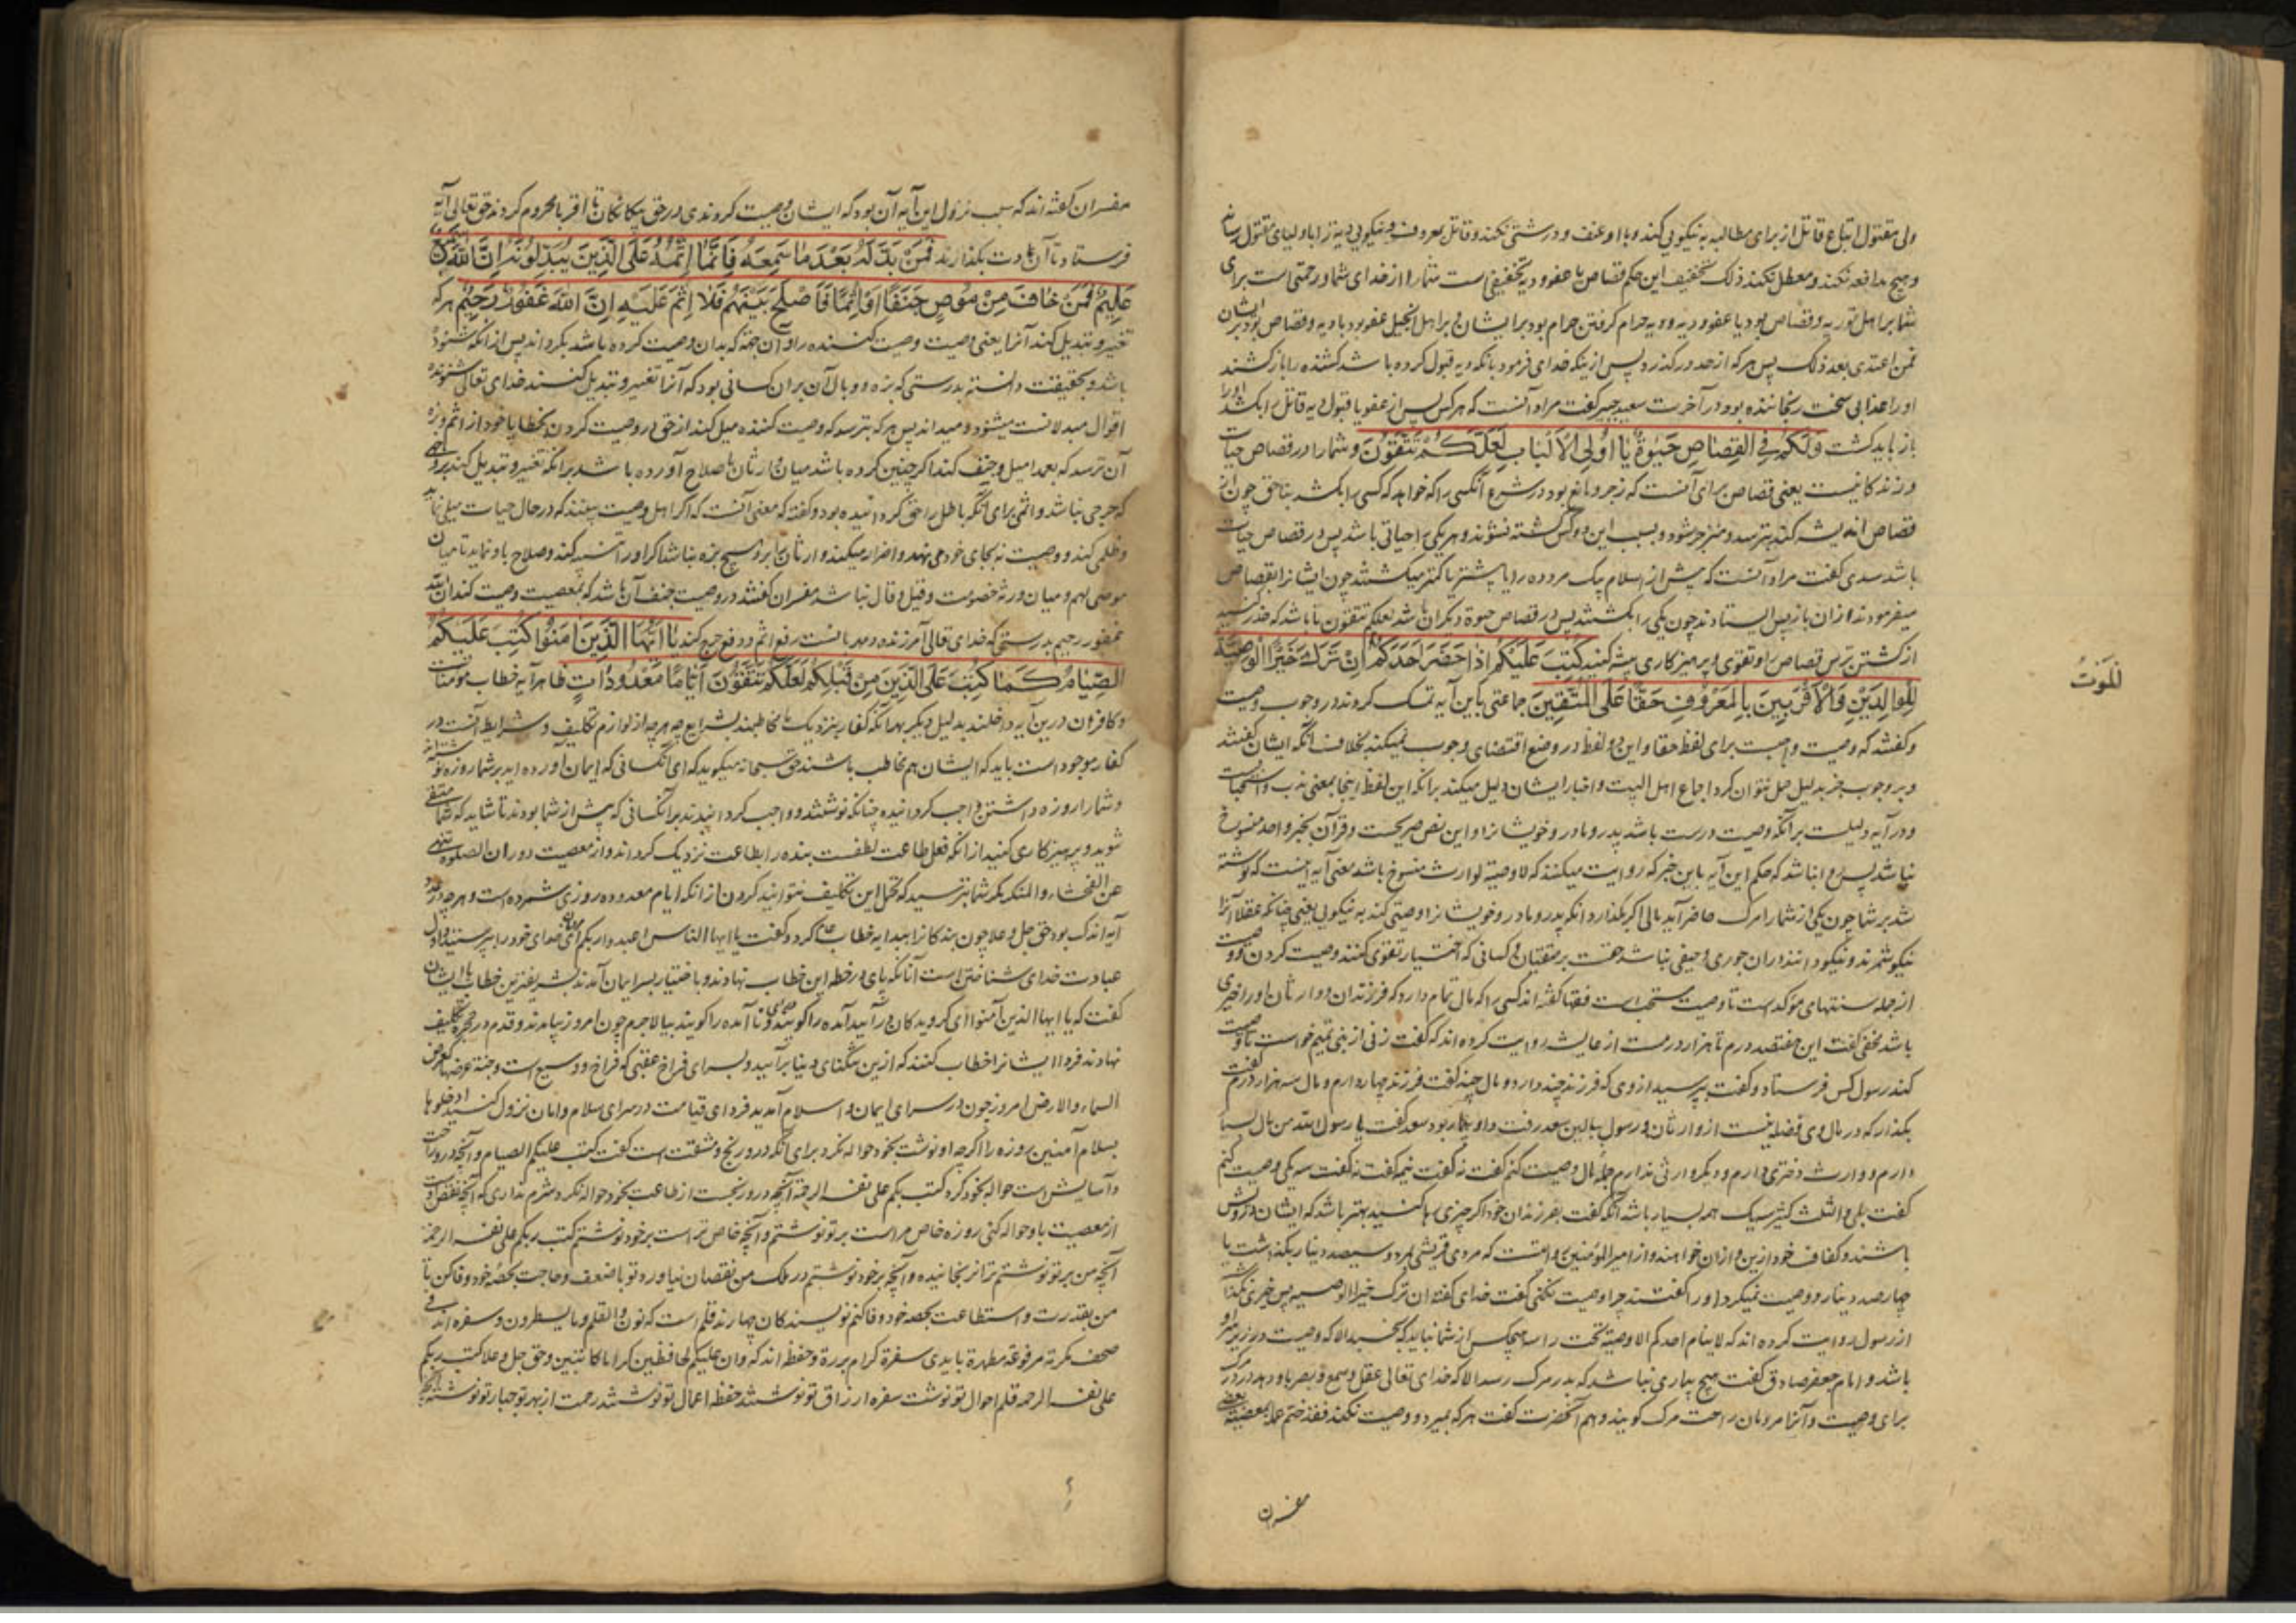 ولی مقتول اتباع قاتل از برای مطالبه به نیکویی کند و با او عنف و درشتی نکند و قاتل بمعروف و نیکویی دیه را باولیای مقتول رساند
و هیچ مدافعه نکند و معطل نکند ذلک تخفیف این حکم قصاص با عفو و دیه تخفیفی است شما را از خدای شما و رحمتی است برای
شما بر اهل توریه قصاص بود یا عفو و دیه حرام گرفتن حرام بود بر ایشان و بر اهل انجیل عفو بود یا دیه و قصاص
فمن اعتدی بعد ذلک پس هر که از حد در گذرد پس از ینکه خدای فرمود بانکه دیه قبول کرده باشد کشنده را باز کشند
او را عذابی سخت رنجاننده بود در آخرت سعید جبیر گفت مراد آنست که هر کس پس از عفو یا قبول دیه قاتل را بکشد او را
باز باید کشت وَلَكُمْ فِي القِصَاصِ حَيٰوةٌ يَا اُولِي الاَلْبَابِ لَعَلَّكُمْ تَتَّقُونَ و شما را در قصاص حیات
و زندکانیست یعنی قصاص برای آنست که زجر و مانع بود در شرع آنکسی را که خواهد که کسی را بکشد بناحق چون از
قصاص اندیشه کند بترسد و منزجر شود و بسبب این دو کس کشته نشوند و هر یکی را حیاتی باشد پس در قصاص حیات
باشد سدی گفت مراد آنست که پیش از اسلام بیک مرد ده را یا بیشتر یا کمتر میکشتند چون ایشانرا بقصاص
میفرمودند از ان باز پس ایستادند چون یکی را بکشتند پس در قصاص حیوة دیگران باشد لعلکم تتقون تا باشد که حذر کنید
از کشتن بترس قصاص را و تقوی و پرهیزکاری پیشه کنید كُتِبَ عَلَيْكُمْ اِذَا حَضَرَ اَحَدَكُمُ اِنْ تَرَكَ خَيْرًا الْوَصِيَّةُ
لِلْوَالِدَيْنِ وَالْاَقْرَبِينَ بِالْمَعْرُوفِ حَقًّا عَلَى الْمُتَّقِينَ جماعتی باین آیه تمسک کردند در وجوب وصیت
الْمَوْتُ
و گفتند که وصیت واجبست برای لفظ حقا و این دو لفظ در وضع اقتضای وجوب میکند بخلاف آنکه ایشان گفتند
و بر وجوب جز بدلیل حمل نتوان کرد اجماع اهل البیت و اخبار ایشان دلیل میکند برانکه این لفظ اینجا بمعنی ندب و استحبابست
و در آیه دلیلست برانکه وصیت درست باشد پدر و مادر و خویشانرا و این نص صریحست و قرآن بخبر واحد منسوخ
نباشد پس روا نباشد که حکم این آیه باین خبر که روایت میکنند که لا وصیة لوارث منسوخ باشد معنی آیه اینست که نوشته
شد بر شما چون یکی از شما را مرک حاضر آید مالی اکر بکذارد انکه پدر و مادر و خویشانرا وصیتی کند به نیکویی یعنی چنانکه عقلا آنرا
نیکو شمرند و نیکو دانند دران جوری و حیفی نباشد حقست بر متقیان و کسانی که اختیار تقوی کنند وصیت کردن
از جمله سنتهای مؤکدست تا وصیت مستحب است فقها گفته اند کسی را که مال تمام دارد که فرزندان و وارثان او را خیری
باشد نخعی گفت این هفتصد درم تا هزار درمست از عایشه روایت کرده اند که گفت زنی از بنی تمیم خواست تا وصیت
کند رسول کس فرستاد و گفت بپرسید از وی که فرزند چند دارد و مال چند گفت فرزند چهار دارم و مال سه هزار درم گفت
بکذار که در مال وی فضله نیست از وارثان و رسول ببالین سعد رفت و او بیمار بود سعد گفت یا رسول الله من مال بسیار
دارم و وارث دختری دارم و دیگر وارثی ندارم جملهٔ مال وصیت کنم گفت نه گفت نیمه گفت نه گفت سه یکی وصیت کنم
گفت بلی و الثلث کثیر سه یک هم بسیار باشد آنکه گفت بفرزندان خود اکر چیزی رها کنید بهتر باشد که ایشان درویش
باشند و کفاف خود از این و ازان خواهند و از امیرالمؤمنین روایتست که مردی قریشی بمرد و سیصد دینار بکذاشت یا
چهارصد دینار و وصیت نمیکرد او را گفتند چرا وصیت نکنی گفت خدای گفته ان ترک خیرا الوصیه پس خیری نکذاشت
از رسول روایت کرده اند که لا ینام احدکم الا وصیته تحت راسه هیچکس از شما نباید که بخسبد الا که وصیت در زیر سر او
باشد و امام جعفر صادق گفت هیچ بیماری نباشد که بدر مرک رسد الا که خدای تعالی عقل و سمع و بصر باو دهد در در مرک
برای وصیت و آنرا مردمان راحت مرک گویند و هم آنحضرت گفت هر که بمیرد و وصیت نکند فقد ختم عمله بمعصیته
مفسران
مفسران گفته اند که سبب نزول این آیه آن بود که ایشان وصیت کردندی در حق بیکانکان تا اقربا محروم کردند حق تعالی آیه
فرستاد تا آن عادت بکذارند فَمَنْ بَدَّلَهُ بَعْدَ مَا سَمِعَهُ فَاِنَّمَا اِثْمُهُ عَلَى الَّذِينَ يُبَدِّلُونَهُ اِنَّ اللّٰهَ سَمِيعٌ
عَلِيمٌ فَمَنْ خَافَ مِنْ مُوصٍ جَنَفًا اَوْ اِثْمًا فَاَصْلَحَ بَيْنَهُمْ فَلَا اِثْمَ عَلَيْهِ اِنَّ اللّٰهَ غَفُورٌ رَحِيمٌ هر که
تغییر و تبدیل کند آنرا یعنی وصیت وصیت کننده را و آن جهة که بدان وصیت کرده باشد بکرداند پس از آنکه شنوده
باشد و بحقیقت دانسته بدرستی که بزه و وبال آن بران کسانی بود که آنرا تغییر و تبدیل کنند خدای تعالی شنونده
اقوال مبدلانست میشنود و میداند پس هر که بترسد که وصیت کننده میل کند از حق در وصیت کردن بخطا یا خود از اثم و بزه
آن ترسد که بعمدا میل و جنف کند اکر چنین کرده باشد میان وارثان باصلاح آورده باشد برانکه تغییر و تبدیل کند بروجهی
که حرجی نباشد و اثمی برای آنکه باطل را حق کردانیده بود و گفته که معنی آنست که اکر اهل وصیت بینند که در حال حیات میلی نماید
و ظلمی کند و وصیت نه بجای خود می نهد و اضرار میکند وارثان را برو هیچ بزه نباشد اکر او را تنبیه کند و صلاح باو نماید تا میان
موصی لهم و میان ورثه خصومت و قیل و قال نباشد مفسران گفتند در وصیت جنف آن باشد که بمعصیت وصیت کند ان الله
غفور رحیم بدرستی که خدای تعالی آمرزنده و مهربانست رفع اثم و دفع حرج کند يَا اَيُّهَا الَّذِينَ اٰمَنُوا كُتِبَ عَلَيْكُمُ
الصِّيَامُ كَمَا كُتِبَ عَلَى الَّذِينَ مِنْ قَبْلِكُمْ لَعَلَّكُمْ تَتَّقُونَ اَيَّامًا مَعْدُودَاتٍ ظاهر آیه خطاب مؤمنانست
و کافران درین آیه داخلند بدلیل دیگر بهر آنکه کفار بنزدیک ما مخاطبند بشرایع چه هر چه از لوازم تکلیف و شرایط آنست در
کفار موجود است باید که ایشان هم مخاطب باشند حق سبحانه میکوید که ای آنکسانی که ایمان آورده اید بر شما روزه نوشته اند
و شما را روزه داشتن واجب کردانیده چنانکه نوشتند و واجب کردانیدند برانکسانی که پیش از شما بودند تا شاید که شما متقی
شوید و پرهیزکاری کنید از انکه فعل طاعت لطفست بنده را بطاعت نزدیک کرداند و از معصیت دور ان الصلوة تنهی
عن الفحشاء و المنکر مکر شما بترسید که تحمل این تکلیف نتوانید کردن از انکه ایام معدوده روزی شمرده است و هر چه در عدد
آید اندک بود حق جل و علا چون بندکانرا بیداء خطاب عام کرد و گفت یا ایها الناس اعبدوا ربکم ای مردمان خدای خود را بپرستید و اول
عبادت خدای شناختن است آنانکه پای در خطه این خطاب نهادند و باختیار بسر ایمان آمدند بشریفترین خطاب با ایشان
گفت که یا ایها الذین آمنوا ای کرویدکان در آیید آمده را گویند و نا آمده را گویند بیا لاجرم چون امروز بیامدند و قدم در حجره تکلیف
نهادند فردا ایشانرا خطاب کنند که ازین تنگنای دنیا برآیید و بسرای فراخ عقبی که فراخ و وسیع است و جنة عرضها کعرض
السماء والارض امروز چون در سرای ایمان و اسلام آمدید فردای قیامت در سرای سلام و امان نزول کنید ادخلوها
بسلام آمنین روزه را اکرچه او نوشت بخود حواله نکرد برای آنکه درو رنج و مشقت است گفت کتب علیکم الصیام و آنچه درو راحت
و آسایش است حواله بخود کرد کتب ربکم علی نفسه الرحمة آنچه درو رنجست از طاعت بخود حواله نکرد شرم نداری که آنچه نقص است
از معصیت باو حواله کنی روزه خاص مراست بر تو نوشتم و آنچه خاص تراست بر خود نوشتم کتب ربکم علی نفسه الرحمة
آنچه من بر تو نوشتم ترا نرنجانیده و آنچه بر خود نوشتم در ملک من نقصان نیاورد تو با ضعف و حاجت بحصهٔ خود وفا کن تا
من بقدرت و استطاعت بحصه خود وفا کنم نویسندکان چهارند قلم است که نون والقلم و ما یسطرون و سفره اند فی
صحف مکرمة مرفوعة مطهرة بایدی سفرة کرام بررة و حفظه اند که وان علیکم لحافظین کراما کاتبین و حق جل و علا کتب ربکم
علی نفسه الرحمه قلم احوال تو نوشت سفره ارزاق تو نوشتند حفظه اعمال تو نوشتند رحمت از بهر تو جبار تو نوشت